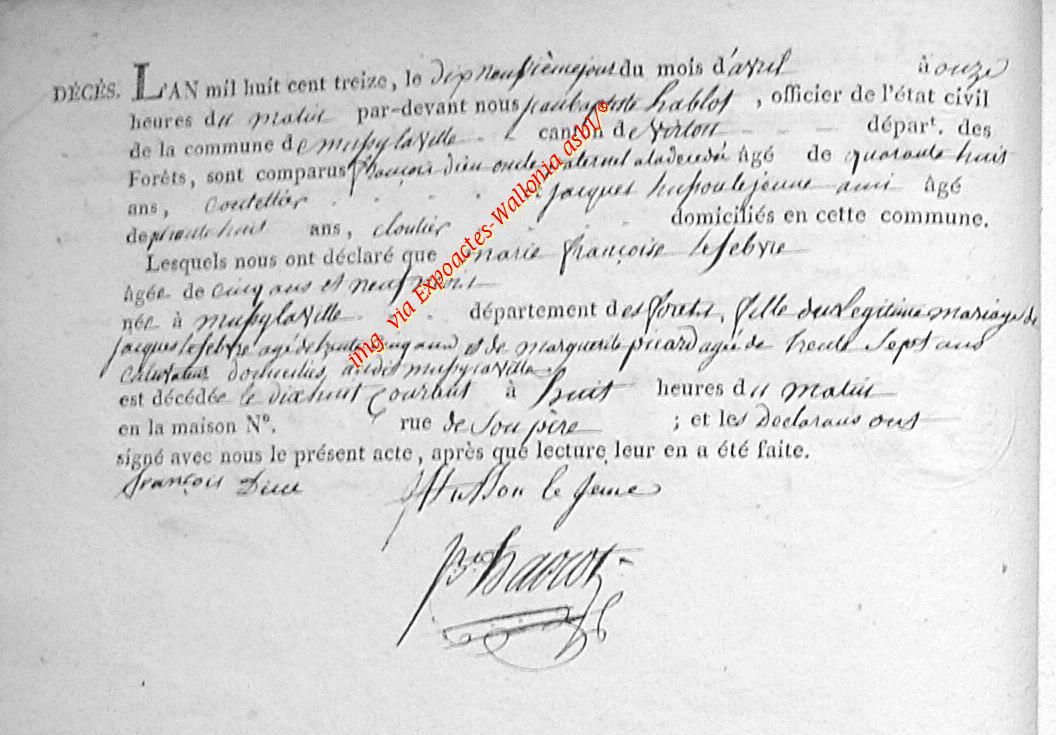 DÉCÈS. L'AN mil huit cent treize, le dix neufvièmejour du mois d'avril à onze
heures du matin par-devant nous jeanbaptiste hablot, officier de l'état civil
de la commune de mussylaville canton de virton départ. des
Forêts, sont comparus françois dieu oncle maternel aladecedée âgé de quarante huit
ans, coutellier jacques husson lejeune ami âgé
de huit ans, cloutier domiciliés en cette commune.
Lesquels nous ont déclaré que marie françoise lefebvre
âgée de cinq ans et neuf mois
née à mussylaville département des forets, fille du legitime mariage de
jacques lefebvre agé de ans et de marguerite picard agée de trente sept ans
domicilies audit mussylaville.
est décédée le dixhuit courant à huit heures du matin
en la maison N°. rue de ; et les declarans ont
signé avec nous le présent acte, après que lecture leur en a été faite.
françois Dieu husson le jeune
hablot
img via Expoactes-Wallonia asbl/©